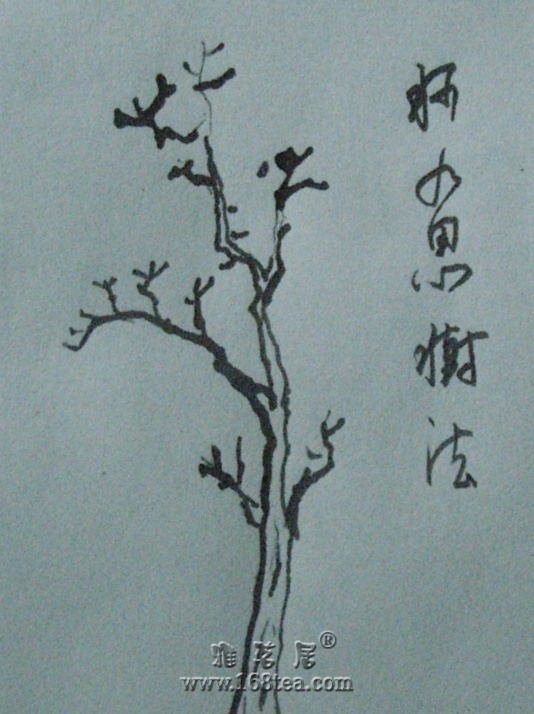 柯九思樹法
雅茗居®
www.168tea.com